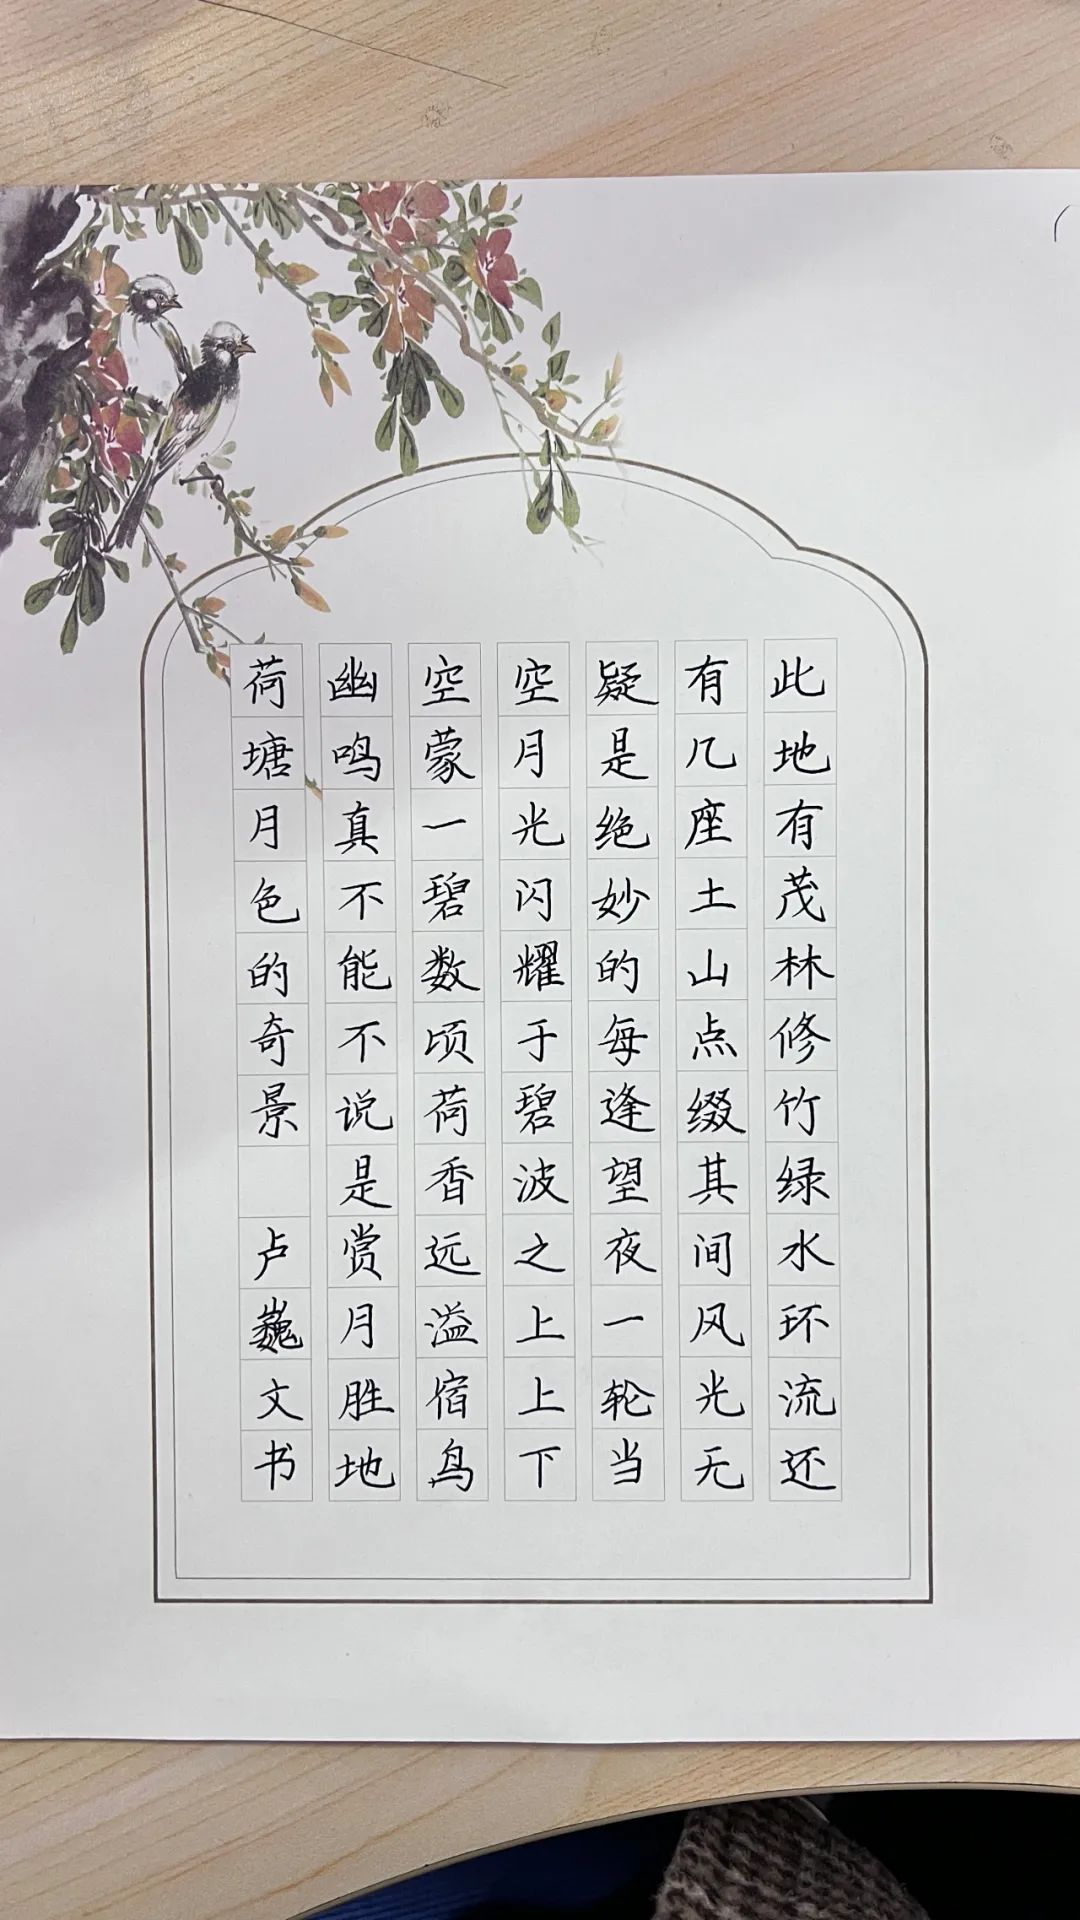 此地有茂林修竹绿水环流还
有几座土山点缀其间风光无
疑是绝妙的每逢望夜一轮当
空月光闪耀于碧波之上上下
空蒙一碧数顷荷香远溢宿鸟
幽鸣真不能不说是赏月胜地
荷塘月色的奇景 卢巍文书